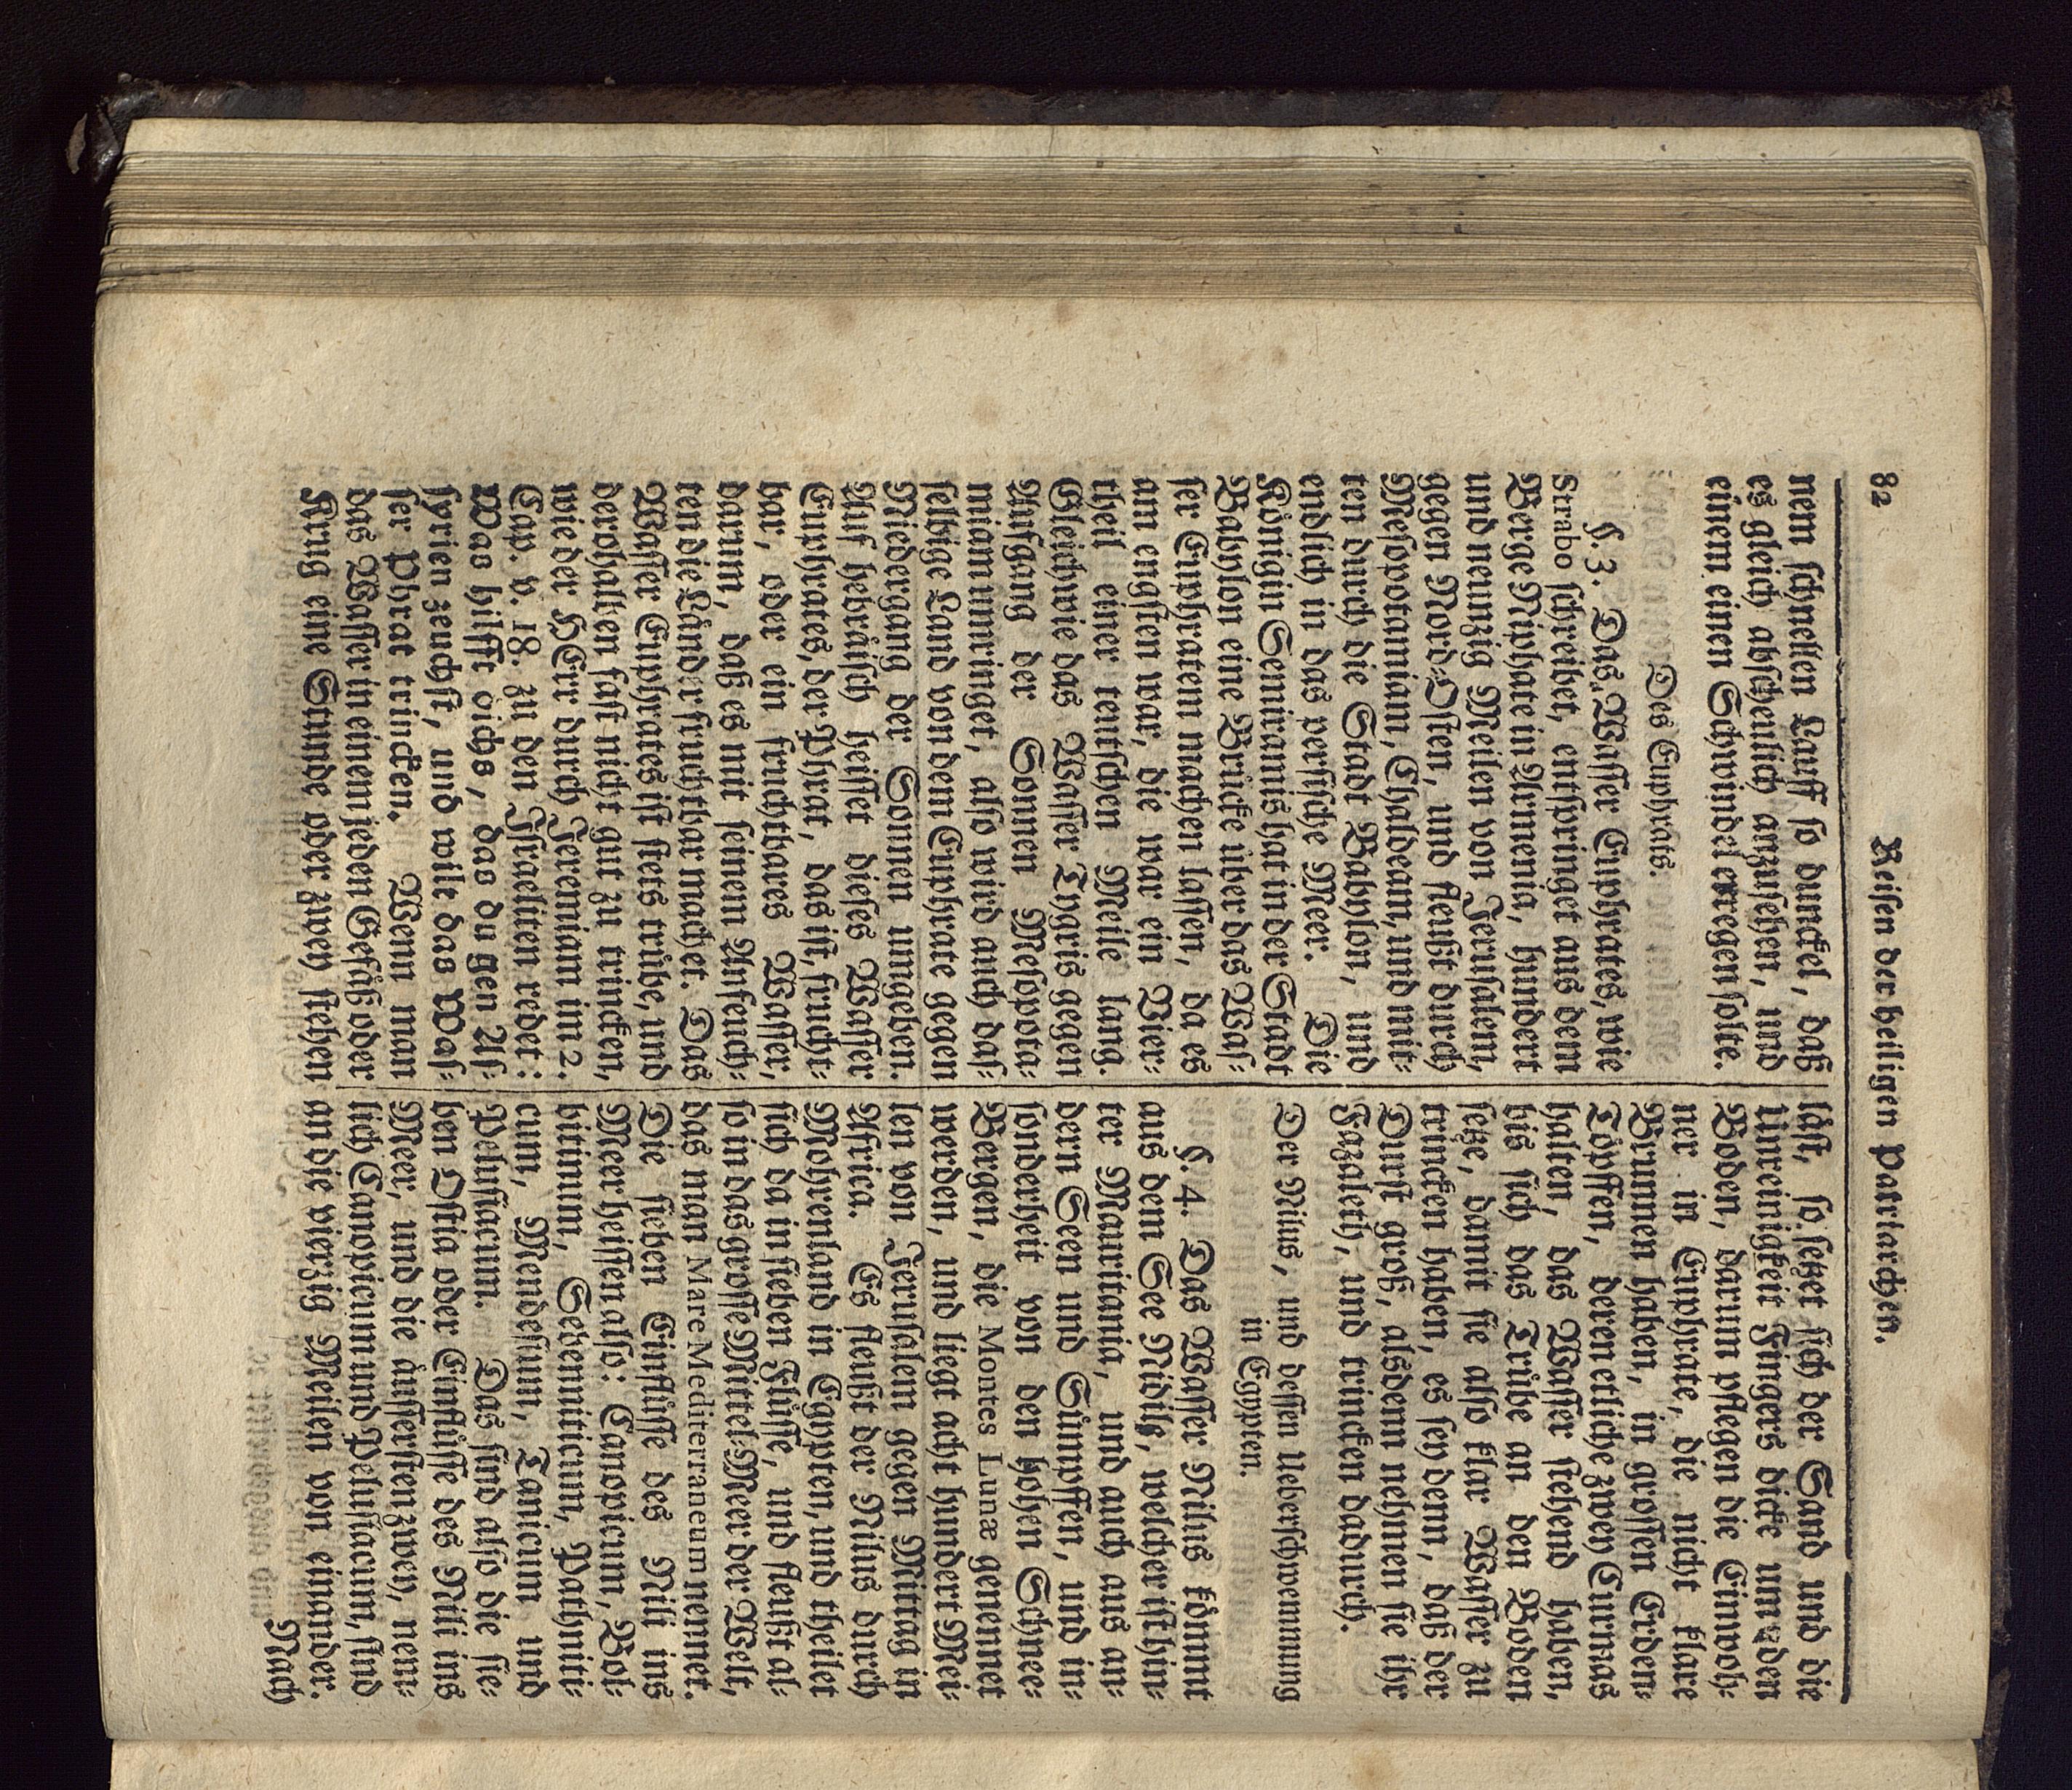 82 Reisen der heiligen Patriarchen.
nem schnellen Lauff so dunckel, daß
es gleich abscheulich anzusehen, und
einem einen Schwindel erregen solte.
Des Euphrats.
§. 3. Das Wasser Euphrates, wie
Strabo schreibet, entspringet aus dem
Berge Niphate in Armenia, hundert
und neunzig Meilen von Jerusalem,
gegen Nord-Osten, und fleußt durch
Mesopotamiam, Chaldeam, und mit-
ten durch die Stadt Babylon, und
endlich in das persische Meer. Die
Königin Semiramis hat in der Stadt
Babylon eine Brücke über das Was-
ser Euphratem machen lassen, da es
am engsten war, die war ein Vier-
theil einer teutschen Meile lang.
Gleichwie das Wasser Tygris gegen
Aufgang der Sonnen Mesopota-
miam umringet, also wird auch das-
selbige Land von dem Euphrate gegen
Niedergang der Sonnen umgeben.
Auf hebräisch heisset dieses Wasser
Euphrates, der Phrat, das ist, frucht-
bar, oder ein fruchtbares Wasser,
darum, daß es mit seinem Anfeuch-
ten die Länder fruchtbar machet. Das
Wasser Euphrates ist stets trübe, und
derohalben fast nicht gut zu trincken,
wie der HErr durch Jeremiam im 2.
Cap. v. 18. zu den Israeliten redet:
Was hilfft dichs, das du gen As-
syrien zeuchst, und wilt das Was-
ser Phrat trincken. Wenn man
das Wasser in einem jeden Gefäß oder
Krug eine Stunde oder zwey stehen
läst, so setzet sich der Sand und die
Unreinigkeit Fingers dicke um den
Boden, darum pflegen die Einwoh-
ner im Euphrate, die nicht klare
Brunnen haben, in grossen Erden-
Töpffen, deren etliche zwey Eurnas
halten, das Wasser stehend haben,
bis sich das Trübe an den Boden
setze, damit sie also klar Wasser zu
trincken haben, es sey denn, daß der
Durst groß, alsdenn nehmen sie ihr
Fazaleth, und trincken dadurch.
Der Nilus, und dessen Ueberschwemmung
in Egypten.
§. 4. Das Wasser Nilus kömmt
aus dem See Nidils, welcher ist hin-
ter Mauritania, und auch aus an-
dern Seen und Sümpffen, und in-
sonderheit von den hohen Schnee-
Bergen, die Montes Lunæ genennet
werden, und liegt acht hundert Mei-
len von Jerusalem gegen Mittag in
Africa. Es fleußt der Nilus durch
Mohrenland in Egypten, und theilet
sich da in sieben Flüsse, und fleußt al-
so in das grosse Mittel-Meer der Welt,
das man Mare Mediterraneum nennet.
Die sieben Einflüsse des Nili ins
Meer heissen also: Canopicum, Bol-
bitinum, Sebenniticum, Pathmiti-
cum, Mendesium, Tanicum und
Pelusiacum. Das sind also die sie-
ben Ostia oder Einflüsse des Nili ins
Meer, und die äussersten zwey, nem-
lich Canopicum und Pelusiacum, sind
an die vierzig Meilen von einander.
Nach